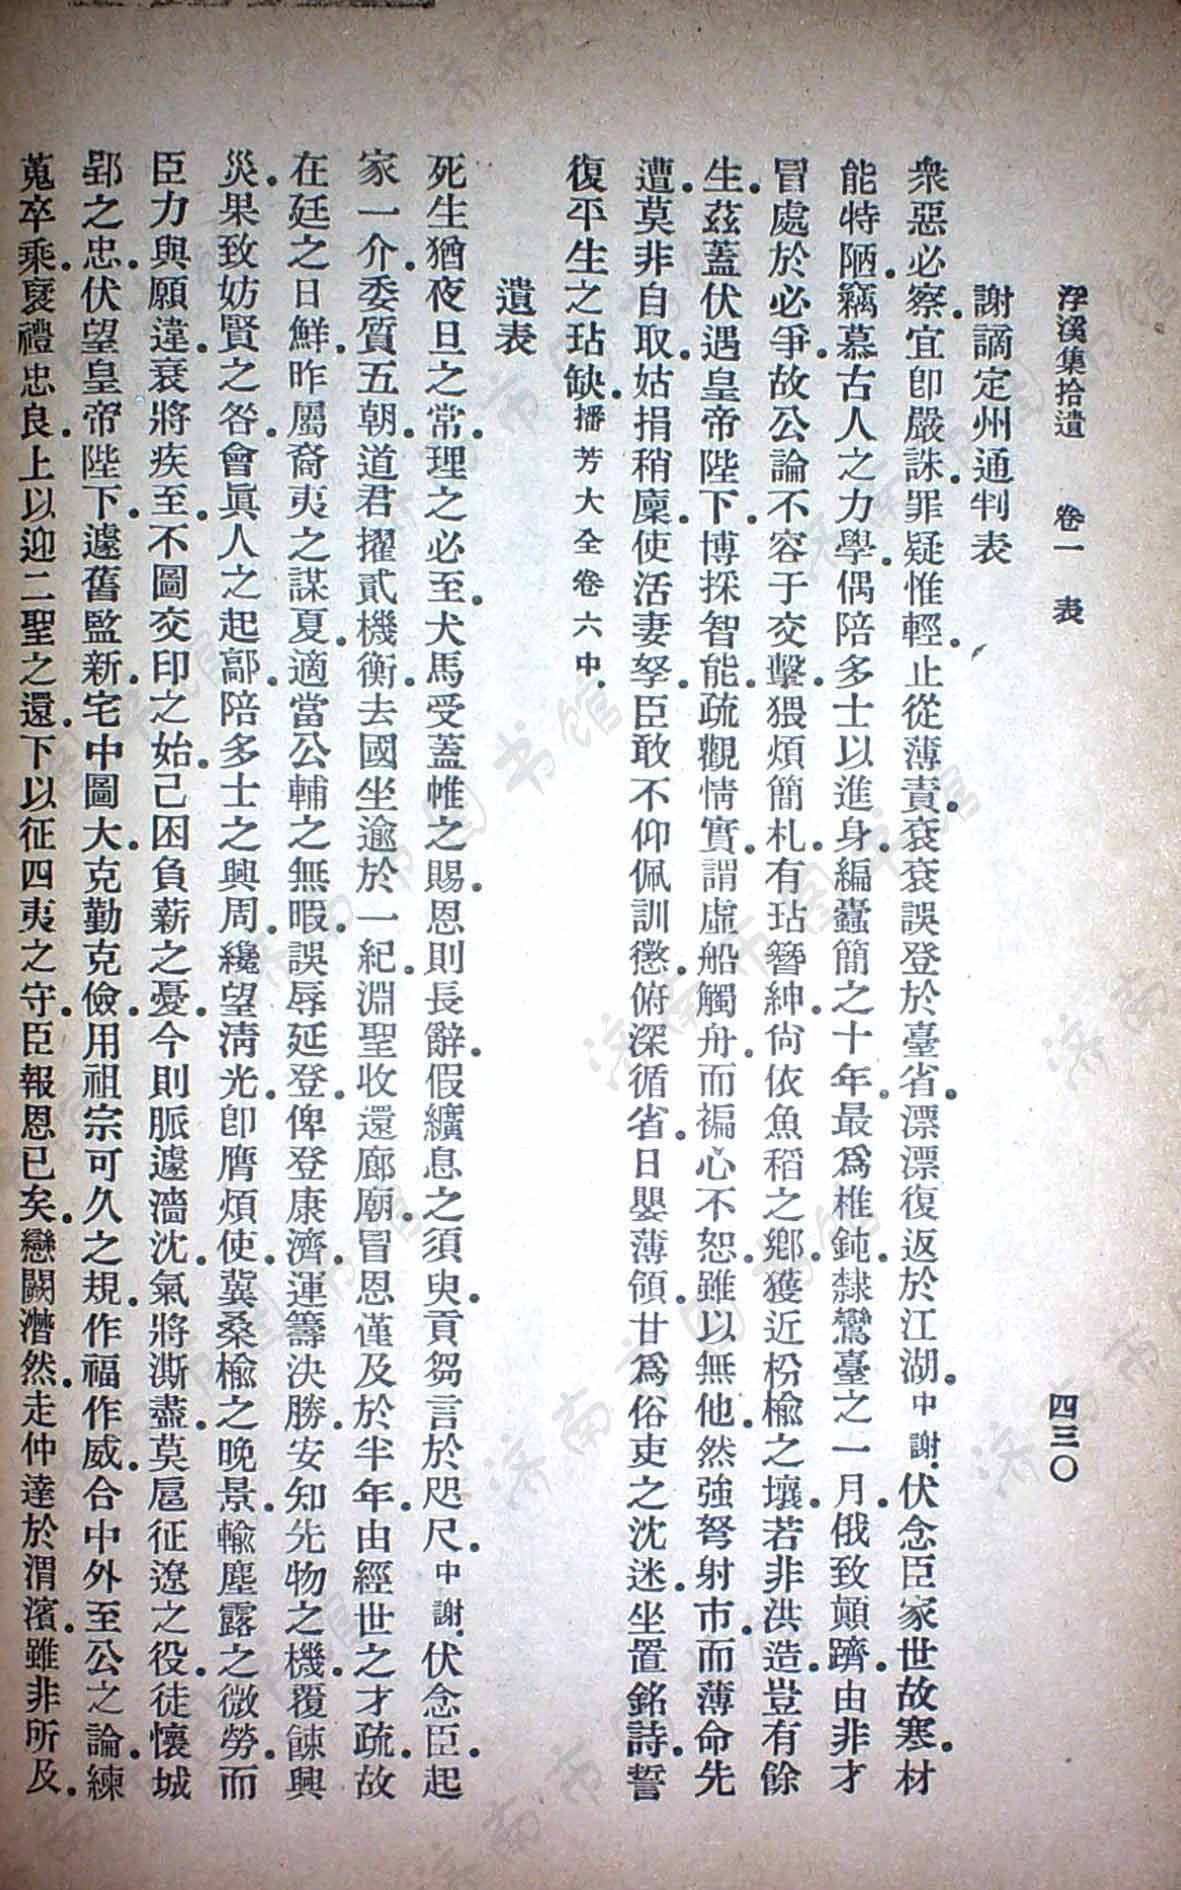 浮溪集拾遺　卷一　表　四三〇
謝謫定州通判表
衆惡必察。宜卽嚴誅。罪疑惟輕。止從薄責。袞袞誤登於臺省。漂漂復返於江湖。中謝。伏念臣家世故寒。材
能特陋。竊慕古人之力學。偶陪多士以進身。編蠹簡之十年。最爲椎鈍。隸鸞臺之一月。俄致顚躋。由非才
冒處於必爭。故公論不容于交擊。猥煩簡札。有玷簪紳。尙依魚稻之鄕。獲近枌楡之壤。若非洪造。豈有餘
生。茲蓋伏遇皇帝陛下。博採智能。疏觀情實。謂虛船觸舟。而褊心不恕。雖以無他。然強弩射市。而薄命先
遭。莫非自取。姑捐稍廩。使活妻孥。臣敢不仰佩訓懲。俯深循省。日嬰薄領。甘爲俗吏之沈迷。坐置銘詩。誓
復平生之玷缺。播芳大全卷六中。
遺表
死生猶夜旦之常。理之必至。犬馬受蓋帷之賜。恩則長辭。假纊息之須臾。貢芻言於咫尺。中謝。伏念臣。起
家一介。委質五朝。道君擢貳機衡。去國坐逾於一紀。淵聖收還廊廟。冒恩僅及於半年。由經世之才疏。故
在廷之日鮮。昨屬裔夷之謀夏。適當公輔之無暇。誤辱延登。俾登康濟。運籌決勝。安知先物之機。覆餗興
災。果致妨賢之咎。會眞人之起鄗。陪多士之興周。纔望淸光。卽膺煩使。冀桑楡之晚景。輸塵露之微勞。而
臣力與願違。衰將疾至。不圖交印之始。已困負薪之憂。今則脈遽濇沈。氣將澌盡。莫扈征遼之役。徒懷城
郢之忠。伏望皇帝陛下。遽舊監新。宅中圖大。克勤克儉。用祖宗可久之規。作福作威。合中外至公之論。練
蒐卒乘。裦禮忠良。上以迎二聖之還。下以征四夷之守。臣報恩已矣。戀闕潸然。走仲達於渭濱。雖非所及。